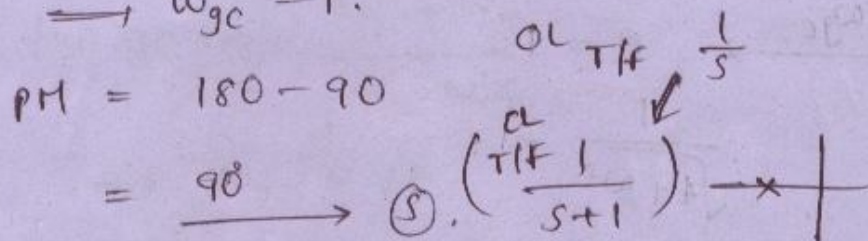 ⟶ ω_gc = 1.
OL T/F 1/s
PM = 180 - 90
= 90° ⟶ Ⓢ. (CL T/F 1/(s+1))